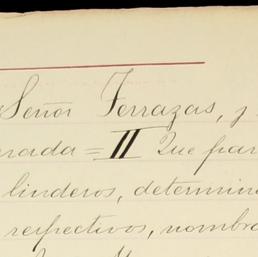 Señor Terrazas, y
rada = II Que par
linderos, determin
respectivos, nombra